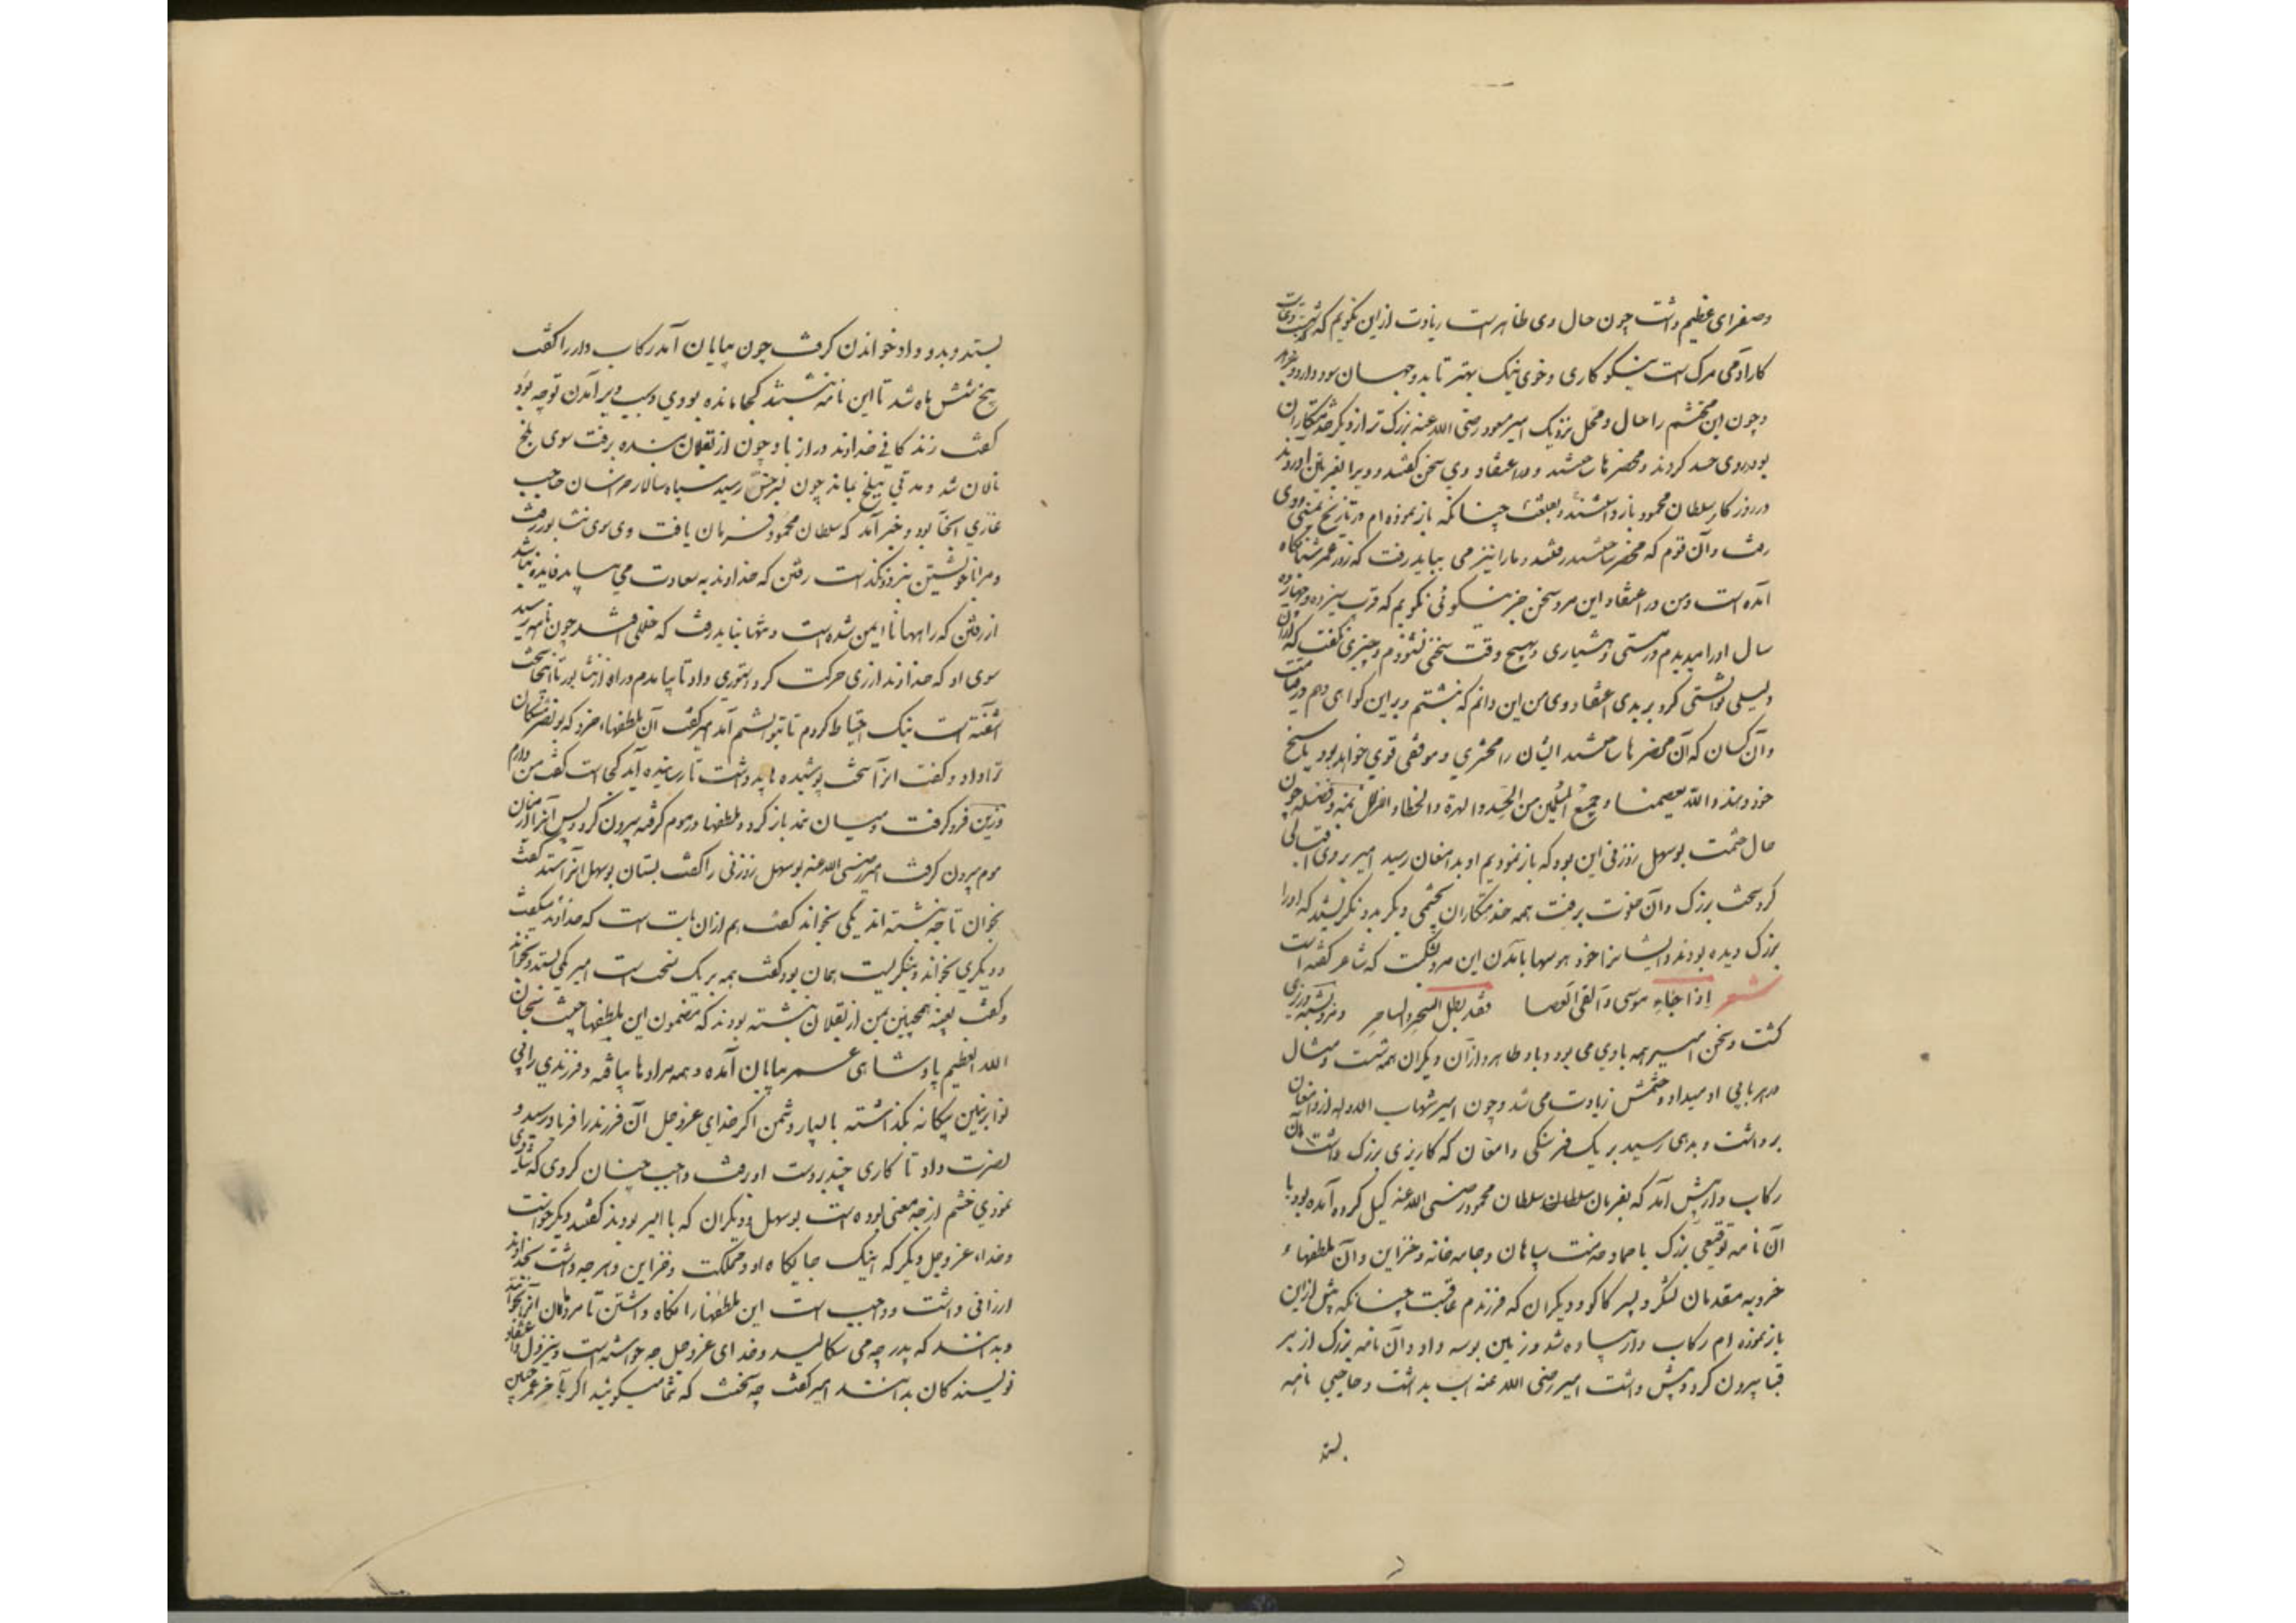 وصفرای عظیم داشت چون حال وی ظاهر است زیادت ازین نگویم که گذشته است و غایت
کار آدمی مرک است نیکوکاری و خوی نیک بهتر تا بدو جهان سود دارد و برخورد
و چون این محتشم را حال و محل نزدیک امیر مسعود رضی الله عنه بزرک تر از دیگر خدمتکاران
بود در وی حسد کردند و محضرها ساختند و در اعتقاد وی سخن گفتند و ویرا بغزنین آوردند
در روزکار سلطان محمود بازداشتند بقلعت چنانکه باز نموده ام در تاریخ یمینی و وی
رفت و آن قوم که محضر ساختند رفتند و مارا نیز می بباید رفت که روز عمر شبانگاه
آمده است و من در اعتقاد این مرد سخن جز نیکوئی نکویم که قرب سیزده و چهارده
سال اورا میدیدم در مستی و هشیاری و بهیچ وقت سخنی نشنودم و چیزی نگفت که ازان
دلیلی توانستی کرد بر بدی اعتقاد وی من این دانم که نبشتم و برین کواهی دهم در قیامت
و آن کسان که آن محضرها ساختند ایشان را محشری و موقفی قوی خواهد بود پاسخ
خود دهند والله یعصمنا و جمیع المسلمین من الحسد والهرة والخطاء والزلل بمنه و فضله چون
حال حشمت بوسهل زوزنی این بود که باز نمودیم او بدامغان رسید امیر بر وی اقبالی
کرد سخت بزرک و آن خلوت برفت همه خدمتکاران بچشمی دیگر بدو نگریستند که اورا
بزرک دیده بودند و ایشانرا خود هوسها بآمدن این مرد بشکست که شاعر گفته است
شعر اِذا جٰاءِ موسی وَ اَلقی اَلعصا فقد بطل السِحر والساحِر و مرد بشبه وزیری
کشت و سخن امیر همه باوی می بود و باد طاهر و ازان دیگران همه نشست و مثال
در هر بابی او میداد و حشمتش زیادت می شد و چون امیر شهاب الدوله از دامغان
برداشت و بدهی رسید بر یک فرسنگی دامغان که کاریزی بزرک داشت آن
رکاب دار پیش آمد که بفرمان سلطان سلطان محمود رضی الله عنه کسیل کرده آمده بود با
آن نامه توقیعی بزرک باحماد خدمت سپاهان و جامه خانه و خزاین و آن ملطفهاء
خرد به مقدمان لشکر و پسر کاکو و دیکران که فرزندم عاقست چنانکه پیش ازین
باز نموده ام رکاب دار پیاده شد و زمین بوسه داد و آن نامه بزرک از بر
قبا بیرون کرد و پیش داشت امیر رضی الله عنه اسب بداشت و حاجبی نامه
بستد
بستد و بدو داد خواندن کرفت چون بپایان آمد رکاب دار را گفت
پنج شش ماه شد تا این نامه نبشتند کجا مانده بودی و سبب دیر آمدن تو چه بود
گفت زندگانی خداوند دراز باد چون از بغلان بنده برفت سوی بلخ
نالان شد و مدتی ببلخ بماند چون بسرخس رسید سپاه سالار خراسان حاجب
غازی آنجا بود و خبر آمد که سلطان محمود فرمان یافت و وی سوی نشابور رفت
و مرا با خویشتن ببرد و نگذاشت رفتن که خداوند به سعادت می بیاید فایده نباشد
از رفتن که راهها نا ایمن شده است و تنها نباید رفت که خللی افتد چون نامه رسید
سوی او که خداوند از ری حرکت کرد دستوری داد تا بیامدم و راه از نشابور تا اینجا سخت
آشفته است نیک احتیاط کردم تا بتوانستم آمد امیر گفت آن ملطفهاء خرد که بونصر مشکان
ترا داد و گفت آنرا سخت پوشیده باید داشت تا رسانیده آید کجاست گفت من دارم
و زین فرو گرفت و میان نمد باز کرد و ملطفها در موم گرفته بیرون کرد و پس آنرا از میان
موم بیرون گرفت امیر رضی الله عنه بوسهل زوزنی را گفت بستان بوسهل آنرا بستد گفت
بخوان تا چه نبشته اند یکی بخواند گفت هم ازان بابت است که خداوند میگفت
و دیگری بخواند و بنگریست همان بود گفت همه بر یک نسخت است امیر یکی بستد و بخواند
و گفت بعینه همچنین بمن از بغلان نبشته بودند که مضمون این ملطفها چیست سبحان
الله العظیم پادشاهی عمر بپایان آمده و همه مرادها بیافته و فرزندی را بی
نوا بزمین بیگانه بگذاشته با بسیار دشمن اگر خدای عز و جل آن فرزند را فریاد رسید و
نصرت داد تا کاری چند بر دست او رفت واجب چنان کردی که شادی
نمودی خشم از چه معنی بوده است بوسهل و دیگران که با امیر بودند گفتند دیگر خواست
و خداء عز و جل دیگر که اینک جایگاه او و مملکت و خزاین و هرچه داشت بخداوند
ارزانی داشت و واجب است این ملطفها را نگاه داشتن تا مردمان آنرا بخوانند
و بدانند که پدر چه می سگالید و خدای عز و جل چه خواست و نیز دل و اعتقاد
نویسندگان بدانند امیر گفت چه سخنست که شما میگوئید اگر بآخر عمر چنین